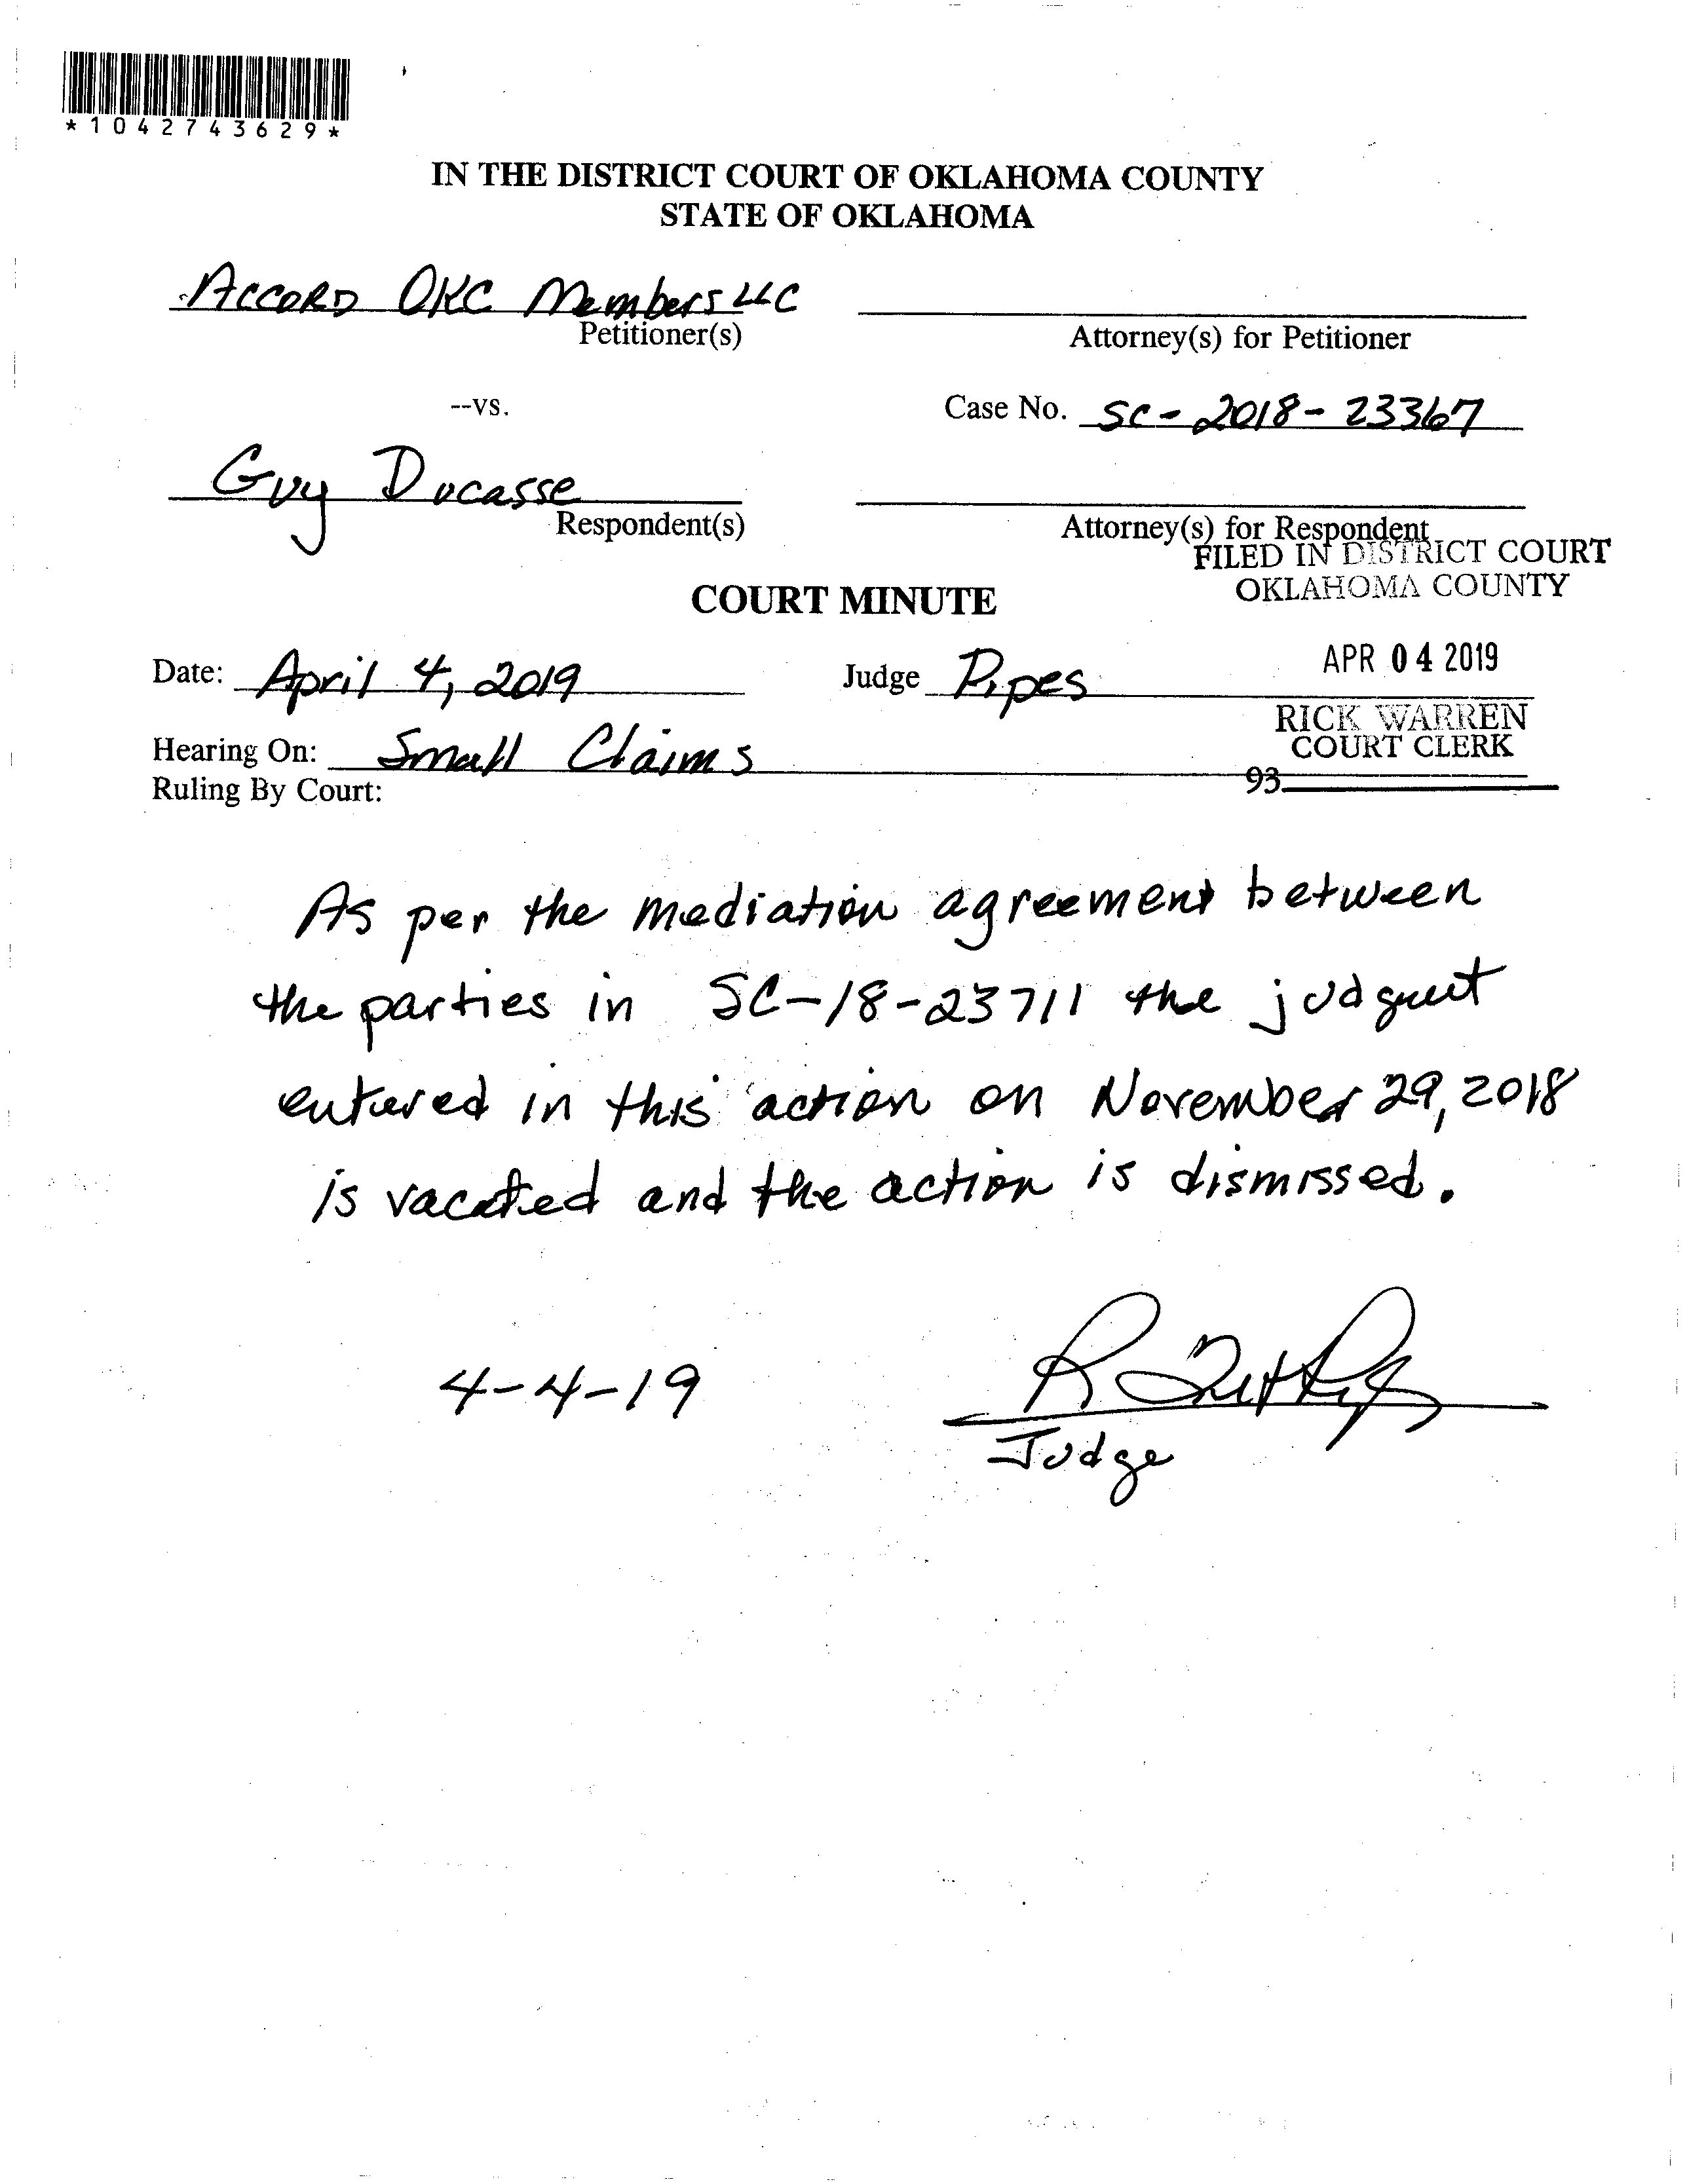 *1042743629*
IN THE DISTRICT COURT OF OKLAHOMA COUNTY
STATE OF OKLAHOMA
Accord OKC Members LLC
Petitioner(s)
Attorney(s) for Petitioner
--vs.
Case No. SC-2018-23367
Guy Ducasse
Respondent(s)
Attorney(s) for Respondent
FILED IN DISTRICT COURT
OKLAHOMA COUNTY
COURT MINUTE
Date: April 4, 2019
Judge Pipes
APR 04 2019
RICK WARREN
COURT CLERK
Hearing On: Small Claims
93
Ruling By Court:
As per the mediation agreement between
the parties in SC-18-23711 the judgment
entered in this action on November 29, 2018
is vacated and the action is dismissed.
4-4-19
Judge